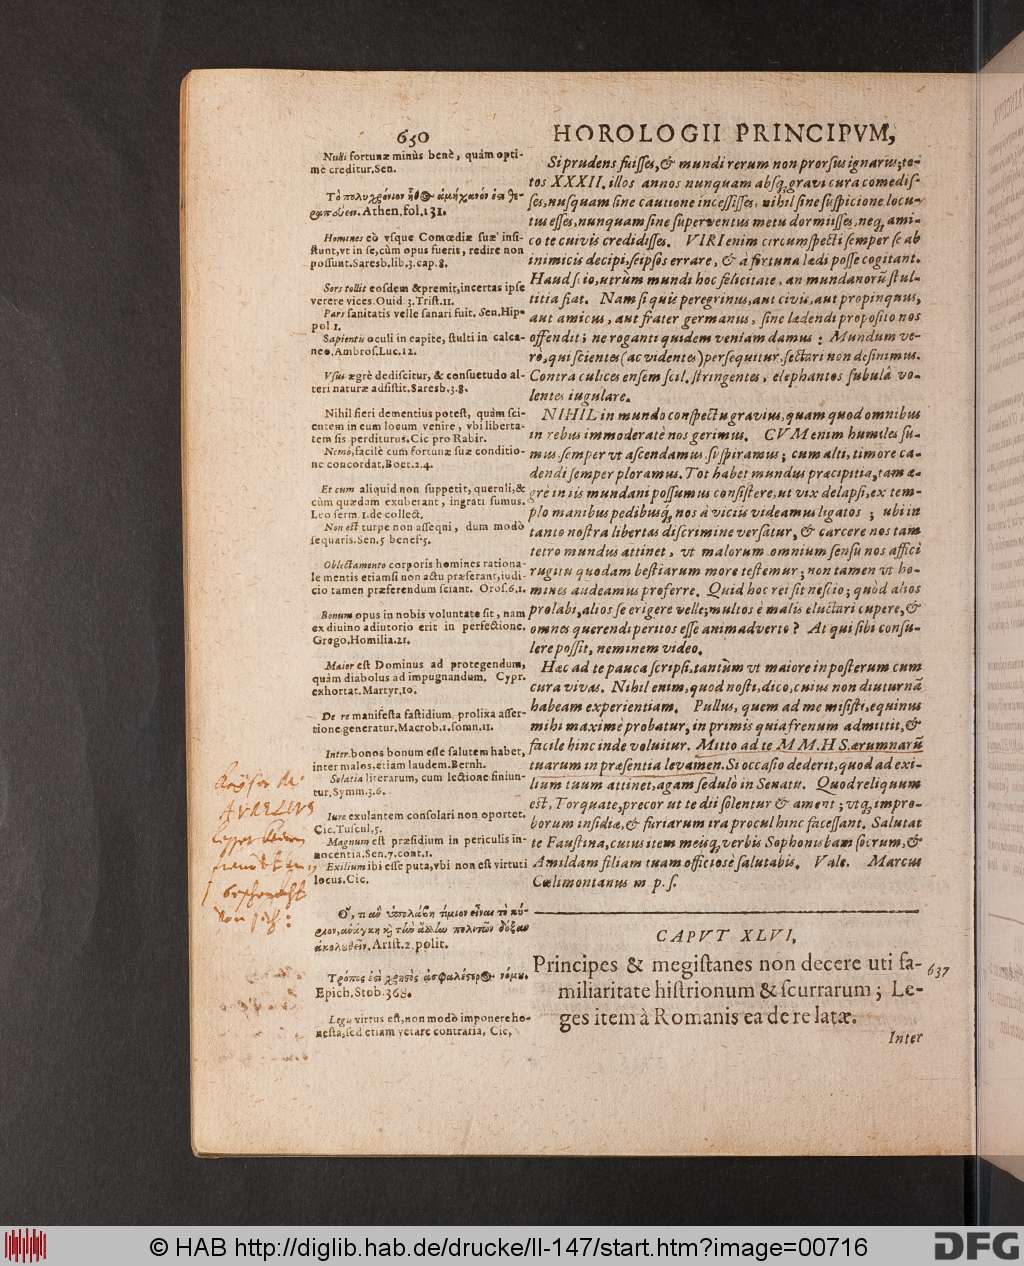 650
HOROLOGII PRINCIPVM,
Nulli fortunæ minùs benè, quàm opti-
mè creditur. Sen.
Τὸ πολυχρόνιον ἦθος ἀμήχανόν ἐστι θε-
ραπεύειν. Athen. fol. 131.
Homines eò vsque Comœdiæ suæ insi-
stunt, vt in se, cùm opus fuerit, redire non
possunt. Saresb. lib. 3. cap. 8.
Sors tollit eosdem & premit, incertas ipse
verere vices. Ouid. 3. Trist. 11.
Pars sanitatis velle sanari fuit. Sen. Hip-
pol. 1.
Sapientis oculi in capite, stulti in calca-
neo. Ambros. Luc. 12.
Vsus ægrè dediscitur, & consuetudo al-
teri naturæ adsistit. Saresb. 3. 8.
Nihil fieri dementius potest, quàm sci-
entem in eum locum venire, vbi liberta-
tem sis perditurus. Cic pro Rabir.
Nemo, facilè cum fortunæ suæ conditio-
ne concordat. Boet. 2. 4.
Et cum aliquid non suppetit, queruli, &
cùm quædam exuberant, ingrati sumus.
Leo serm 1. de collect.
Non est turpe non assequi, dum modò
sequaris. Sen. 5 benef. 5.
Oblectamento corporis homines rationa-
le mentis etiamsi non actu præferant, iudi-
cio tamen præferendum sciant. Oros. 6. 1.
Bonum opus in nobis voluntate fit, nam
ex diuino adiutorio erit in perfectione.
Grego. Homilia. 21.
Maior est Dominus ad protegendum,
quàm diabolus ad impugnandum. Cypr.
exhortat. Martyr. 10.
De re manifesta fastidium prolixa asser-
tione generatur. Macrob. 1. somn. 11.
Inter bonos bonum esse salutem habet,
inter malos, etiam laudem. Bernh.
Solatia literarum, cum lectione finiun-
tur. Symm. 3. 6.
Iure exulantem consolari non oportet.
Cic. Tuscul. 5.
Magnum est præsidium in periculis in-
nocentia. Sen. 7. cont. 1.
Exilium ibi esse puta, vbi non est virtuti
locus. Cic.
Ὅ, τι ἂν ὑπολάβῃ τίμιον εἶναι τὸ κύ-
ριον, ἀνάγκη καὶ τῶν ἄλλων πολιτῶν δόξαν
ἀκολουθεῖν. Arist. 2. polit.
Τρόπος ἐστὶ χρηστὸς ἀσφαλέστερος νόμου.
Epich. Stob. 368.
Legis virtus est, non modò imponere ho-
nesta, sed etiam vetare contraria, Cic,
AVRELIVS
Si prudens fuisses, & mundi rerum non prorsus ignarus; to-
tos XXXII. illos annos nunquam absq; gravi cura comedis-
ses, nusquam sine cautione incessisses, nihil sine suspicione locu-
tus esses, nunquam sine superventus metu dormiisses, neq; ami-
co te cuivis credidisses. VIRI enim circumspecti semper se ab
inimicis decipi, seipsos errare, & à fortuna lædi posse cogitant.
Haud scio, utrùm mundi hoc felicitate, an mundanorũ stul-
titia fiat. Nam si quis peregrinus, aut civis, aut propinquus,
aut amicus, aut frater germanus, sine lædendi proposito nos
offendit; ne roganti quidem veniam damus: Mundum ve-
rò, qui scientes (ac videntes) persequitur, sectari non desinimus.
Contra culices ensem scil. stringentes, elephantos subulâ vo-
lentes iugulare.
NIHIL in mundo conspectu gravius, quam quod omnibus
in rebus immoderatè nos gerimus. CVM enim humiles su-
mus, semper ut ascendamus suspiramus; cum alti, timore ca-
dendi semper ploramus. Tot habet mundus præcipitia, tam æ-
grè in iis mundani possumus consistere, ut vix delapsi, extem-
plo manibus pedibusq; nos à vitiis videamus ligatos; ubi in
tanto nostra libertas discrimine versatur, & carcere nos tam
tetro mundus attinet, vt malorum omnium sensu nos affici
rugitu quodam bestiarum more testemur; non tamen vt ho-
mines audeamus proferre. Quid hoc rei sit nescio; quòd alios
prolabi, alios se erigere velle; multos è malis eluctari cupere, &
omnes querendi peritos esse animadverto? At qui sibi consu-
lere possit, neminem video.
Hæc ad te pauca scripsi, tantùm vt maiore in posterum cum
cura vivas. Nihil enim, quod nosti, dico, cuius non diuturnã
habeam experientiam. Pullus, quem ad me misisti, equinus
mihi maximè probatur, in primis quia frenum admittit, &
facile hinc inde voluitur. Mitto ad te M M. H S. ærumnarũ
tuarum in præsentia levamen. Si occasio dederit, quod ad exi-
lium tuum attinet, agam sedulò in Senatu. Quod reliquum
est, Torquate, precor ut te dii solentur & ament; utq; impro-
borum insidiæ, & furiarum ira procul hinc facessant. Salutat
te Faustina, cuius item meisq; verbis Sophonisbam socrum, &
Amildam filiam tuam officiosè salutabis. Vale. Marcus
Cœlimontanus m p. s.
CAPVT XLVI.
Principes & megistanes non decere uti fa-
miliaritate histrionum & scurrarum; Le-
ges item à Romanis ea de re latæ.
637
Inter
© HAB http://diglib.hab.de/drucke/ll-147/start.htm?image=00716
DFG